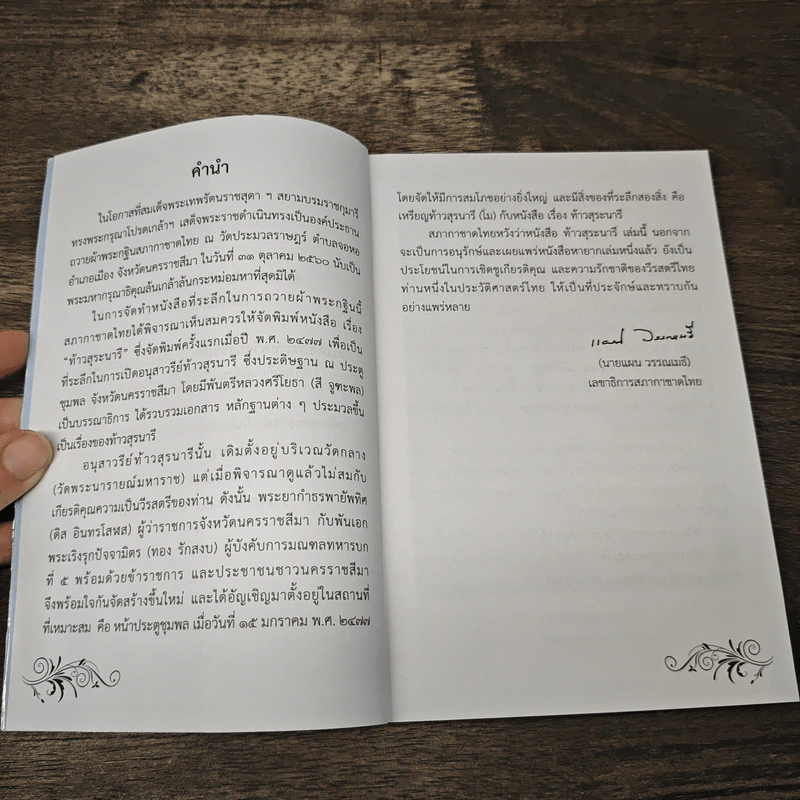 คำนำ
ในโอกาสที่สมเด็จพระเทพรัตนราชสุดา ฯ สยามบรมราชกุมารี
ทรงพระกรุณาโปรดเกล้าฯ เสด็จพระราชดำเนินทรงเป็นองค์ประธาน
ถวายผ้าพระกฐินสภากาชาดไทย ณ วัดประมวลราษฎร์ ตำบลจอหอ
อำเภอเมือง จังหวัดนครราชสีมา ในวันที่ ๓๑ ตุลาคม ๒๕๖๐ นับเป็น
พระมหากรุณาธิคุณล้นเกล้าล้นกระหม่อมหาที่สุดมิได้
ในการจัดทำหนังสือที่ระลึกในการถวายผ้าพระกฐินนี้
สภากาชาดไทยได้พิจารณาเห็นสมควรให้จัดพิมพ์หนังสือ เรื่อง
“ท้าวสุระนารี” ซึ่งจัดพิมพ์ครั้งแรกเมื่อปี พ.ศ. ๒๔๗๗ เพื่อเป็น
ที่ระลึกในการเปิดอนุสาวรีย์ท้าวสุรนารี ซึ่งประดิษฐาน ณ ประตู
ชุมพล จังหวัดนครราชสีมา โดยมีพันตรีหลวงศรีโยธา (สี จูฑะพล)
เป็นบรรณาธิการ ได้รวบรวมเอกสาร หลักฐานต่าง ๆ ประมวลขึ้น
เป็นเรื่องของท้าวสุรนารี
อนุสาวรีย์ท้าวสุรนารีนั้น เดิมตั้งอยู่บริเวณวัดกลาง
(วัดพระนารายณ์มหาราช) แต่เมื่อพิจารณาดูแล้วไม่สมกับ
เกียรติคุณความเป็นวีรสตรีของท่าน ดังนั้น พระยากำธรพายัพทิศ
(ดิส อินทรโสฬส) ผู้ว่าราชการจังหวัดนครราชสีมา กับพันเอก
พระเริงรุกปัจจามิตร (ทอง รักสงบ) ผู้บังคับการมณฑลทหารบก
ที่ ๕ พร้อมด้วยข้าราชการ และประชาชนชาวนครราชสีมา
จึงพร้อมใจกันจัดสร้างขึ้นใหม่ และได้อัญเชิญมาตั้งอยู่ในสถานที่
ที่เหมาะสม คือ หน้าประตูชุมพล เมื่อวันที่ ๑๕ มกราคม พ.ศ. ๒๔๗๗
โดยจัดให้มีการสมโภชอย่างยิ่งใหญ่ และมีสิ่งของที่ระลึกสองสิ่ง คือ
เหรียญท้าวสุรนารี (โม) กับหนังสือ เรื่อง ท้าวสุระนารี
สภากาชาดไทยหวังว่าหนังสือ ท้าวสุระนารี เล่มนี้ นอกจาก
จะเป็นการอนุรักษ์และเผยแพร่หนังสือหายากเล่มหนึ่งแล้ว ยังเป็น
ประโยชน์ในการเชิดชูเกียรติคุณ และความรักชาติของวีรสตรีไทย
ท่านหนึ่งในประวัติศาสตร์ไทย ให้เป็นที่ประจักษ์และทราบกัน
อย่างแพร่หลาย
แผน วรรณเมธี
(นายแผน วรรณเมธี)
เลขาธิการสภากาชาดไทย